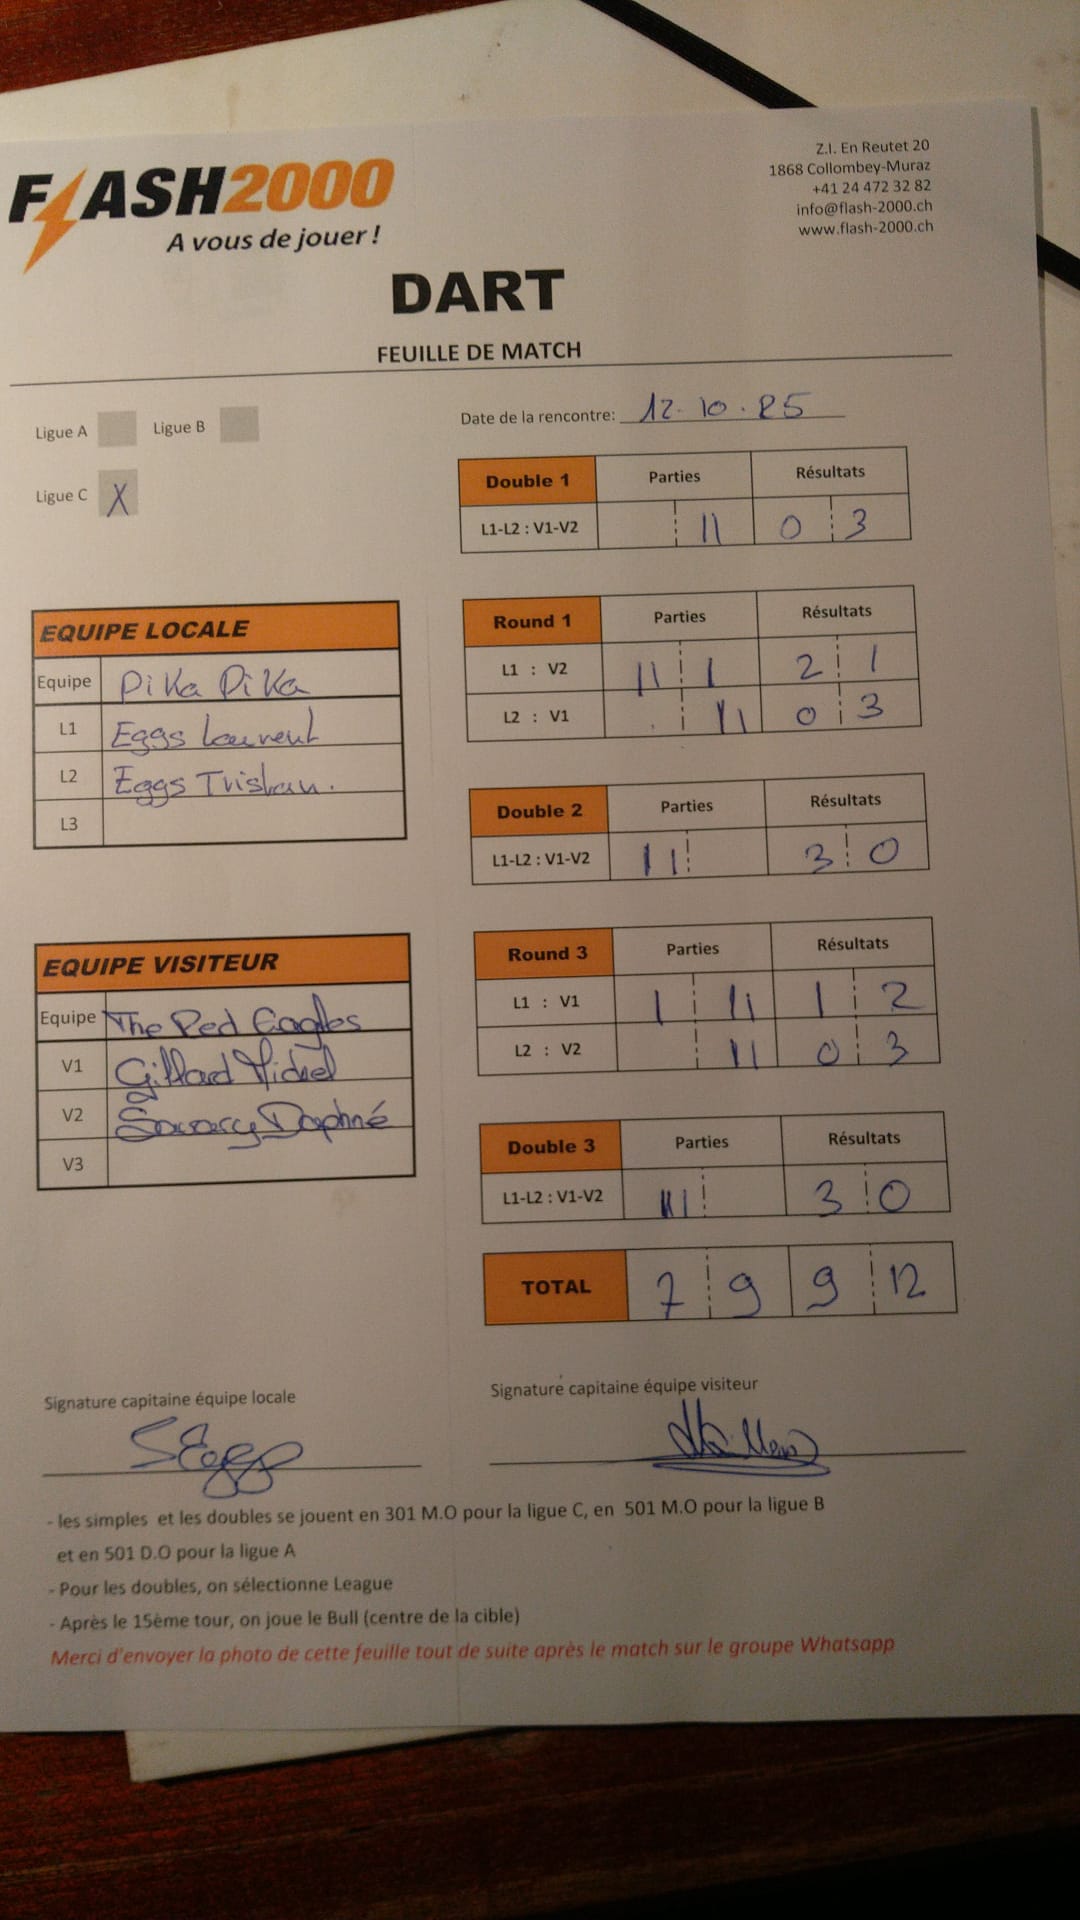 FLASH2000
A vous de jouer !
Z.I. En Reutet 20
1868 Collombey-Muraz
+41 24 472 32 82
info@flash-2000.ch
www.flash-2000.ch
DART
FEUILLE DE MATCH
Ligue A Ligue B
Ligue C X
Date de la rencontre: 12.10.25
Double 1 Parties Résultats
L1-L2 : V1-V2 11 0 3
EQUIPE LOCALE
Equipe Pika Pika
L1 Eggs Laurent
L2 Eggs Tristan.
L3
Round 1 Parties Résultats
L1 : V2 11 1 2 1
L2 : V1 11 0 3
Double 2 Parties Résultats
L1-L2 : V1-V2 11 3 0
EQUIPE VISITEUR
Equipe The Red Eagles
V1 Gillard
V2 Daphné
V3
Round 3 Parties Résultats
L1 : V1 1 11 1 2
L2 : V2 11 0 3
Double 3 Parties Résultats
L1-L2 : V1-V2 3 0
TOTAL 7 9 9 12
Signature capitaine équipe locale
SEggs
Signature capitaine équipe visiteur
- les simples et les doubles se jouent en 301 M.O pour la ligue C, en 501 M.O pour la ligue B
et en 501 D.O pour la ligue A
- Pour les doubles, on sélectionne League
- Après le 15ème tour, on joue le Bull (centre de la cible)
Merci d'envoyer la photo de cette feuille tout de suite après le match sur le groupe Whatsapp